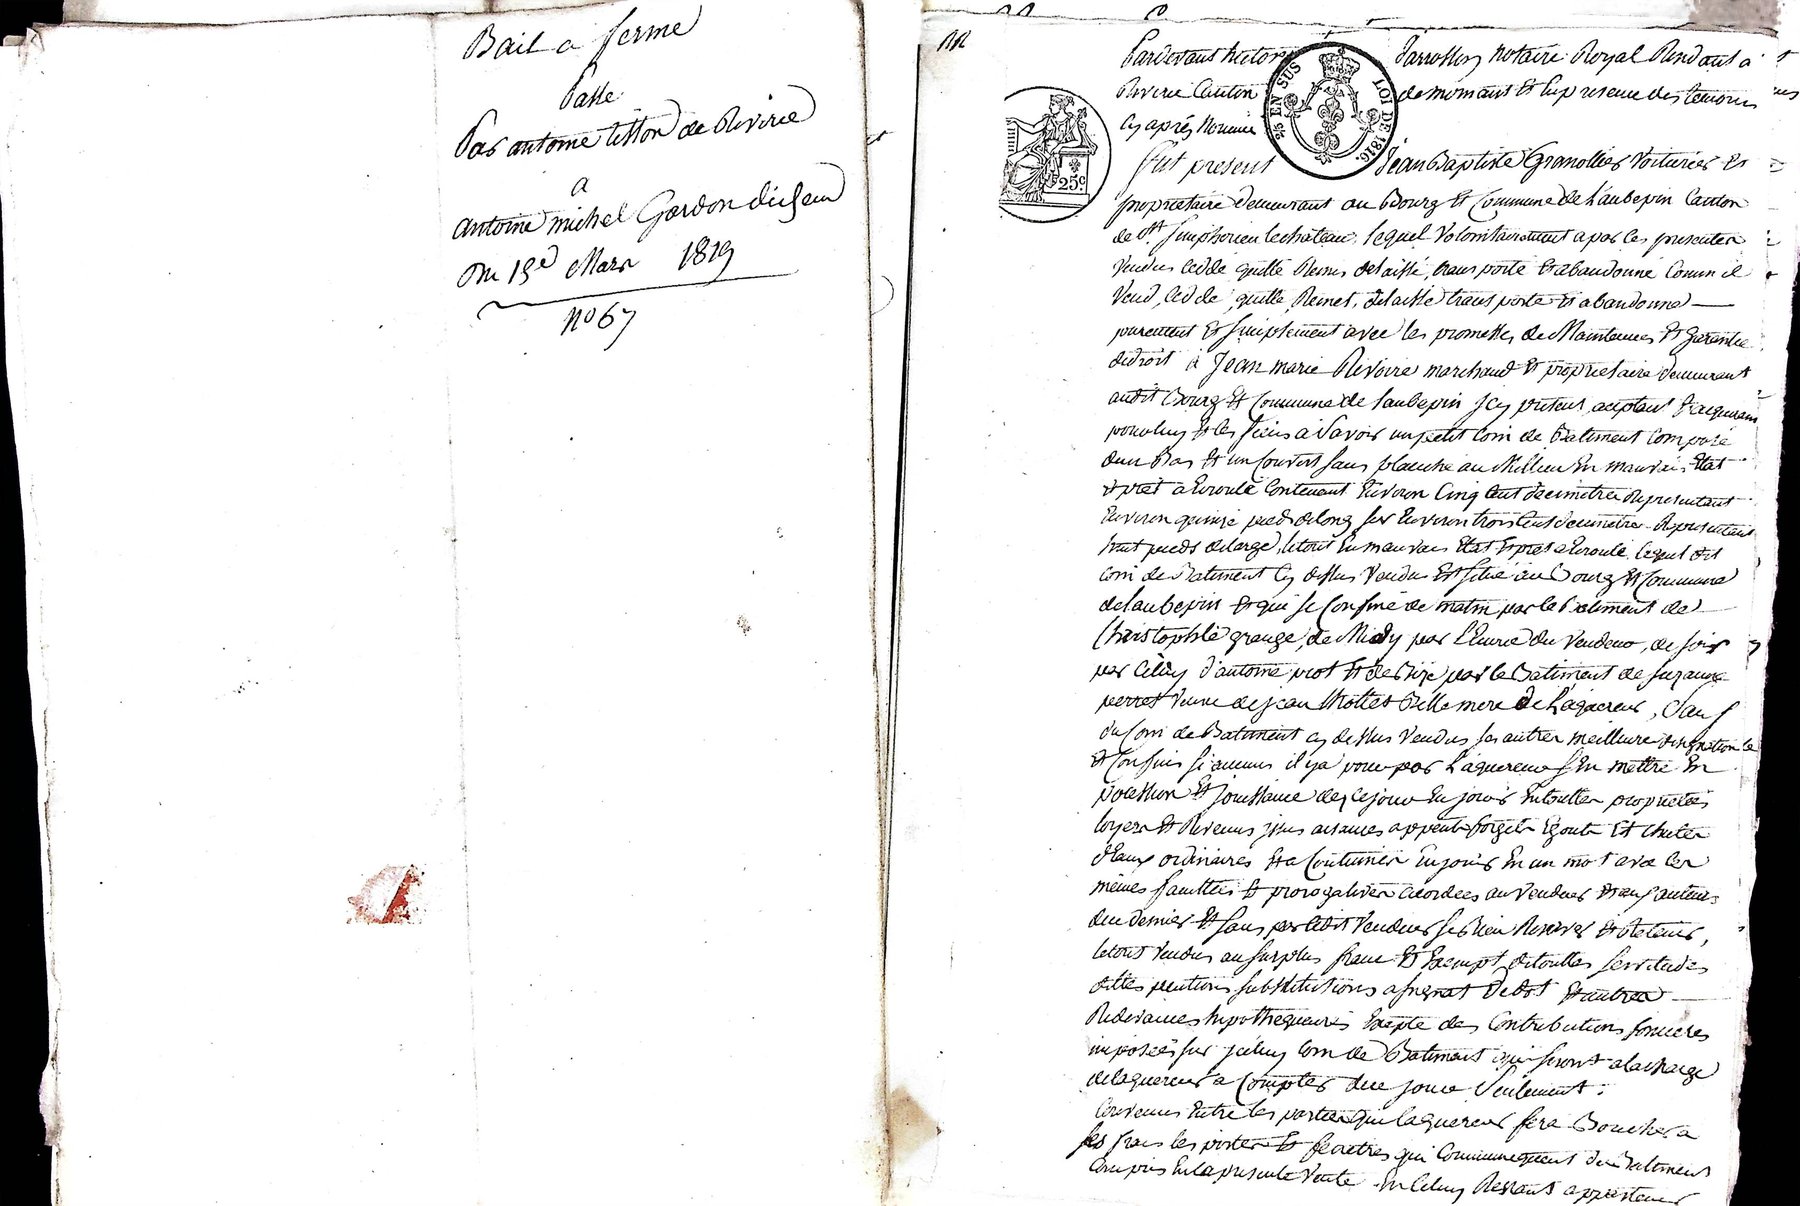 Bail a ferme
Passé
Par antoine tisson de Riverie
a
antoine michel Gardon dudit lieu
Du 15e Mars 1819
No 67
Pardevant Parrossier Notaire Royal Residant à
Riverie Canton de mornant Et En presence des temoins
Cy aprés Nommés
25 EN SUS
LOI DE 1816.
25c
fut present Jean Baptiste Granottier Voiturier Et
proprietaire demeurant au Bourg Et Commune de Laubepin Canton
de St Simphorien le chateau, lequel Volontairement a par Ces presentes
Vendu Ceddé quitté Remis delaissé, transporté Et abandonné Comm il
Vend, Cedde, quitte, Remet, delaisse transporte Et abandonne
purement Et simplement avec les promesses de Maintenues Et garentie
de droit à Jean marie Rivoire marchand Et proprietaire demeurant
audit Bourg Et Commune de Laubepin Icy present acceptant Et aquerant
pour luy Et les siens a Savoir un petit Coin de Batiment Composé
d'un Bas Et un Couvert sans planché au Millieu En mauvais Etat
Et pret a Ecroulé Contenant Environ Cinq Cent decimetres Representant
Environ quinze pieds de long sur Environ trois Cent decimetres Representant
huit pieds de large, le tout En mauvais Etat Et pret a Ecroulé, lequel dit
Coin de Batiment Cy dessus Vendu Est situé au Bourg Et Commune
de laubepin Et qui se Confine de matin par le Batiment de
Christophle grange, de Midy par L'Ecurie du Vendeur, de soir
par Celuy d'antoine piot Et de Bize par le Batiment de suzanne
perret Veuve de jean thollet Belle mere de L'aquereur, Sauf
du Coin de Batiment cy dessus Vendu ses autres meilleure designation
Et Confins si aucuns il y a pour par L'aquereur s'En mettre En
possession Et jouissance des ce jour En jouir En touttes proprietés
loyers Et Revenus, jssus aisances appent forgets Egouts Et chutes
d'Eaux ordinaires Et a Coutumés En jouir En un mot avec les
mêmes facultés Et prerogatives acordées au Vendeur Et aux auteurs
de ce dernier Et sans par ledit Vendeur se Rien Reserver Et Retenir,
le tout Vendu au surplus franc Et Exempt de touttes servitudes
dettes pentions substitutions asignat de dot Et autres
Redevances hypothequaires Exepté des Contributions foncieres
imposées sur jceluy Coin de Batiment qui seront a la charge
de laquereur a Compter de ce jour Seulement:
Convenus Entre les parties que laquereur fera Boucher a
ses frais les portes Et fenetres qui Communiquent du Batiment
Compris En la presente Vente En Celuy Restant appartenir